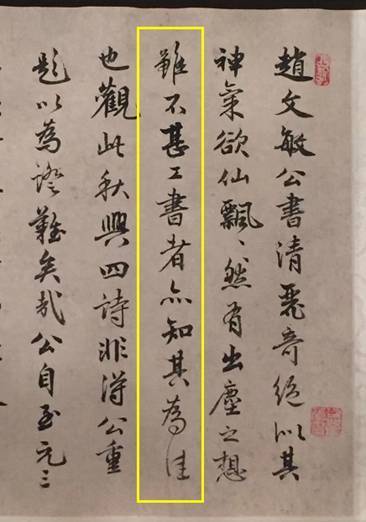 趙文敏公書清麗奇絶以其
神氣欲仙飄飄然有出塵之想
雖不甚工書者亦知其為佳
也觀此秋興四詩非得公重
題以為證難矣哉公自至元三